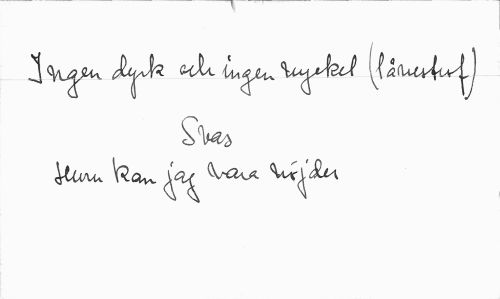 Ingen dyrk och ingen nyckel (lånestrof)
Svar
Huru kan jag vara nöjder